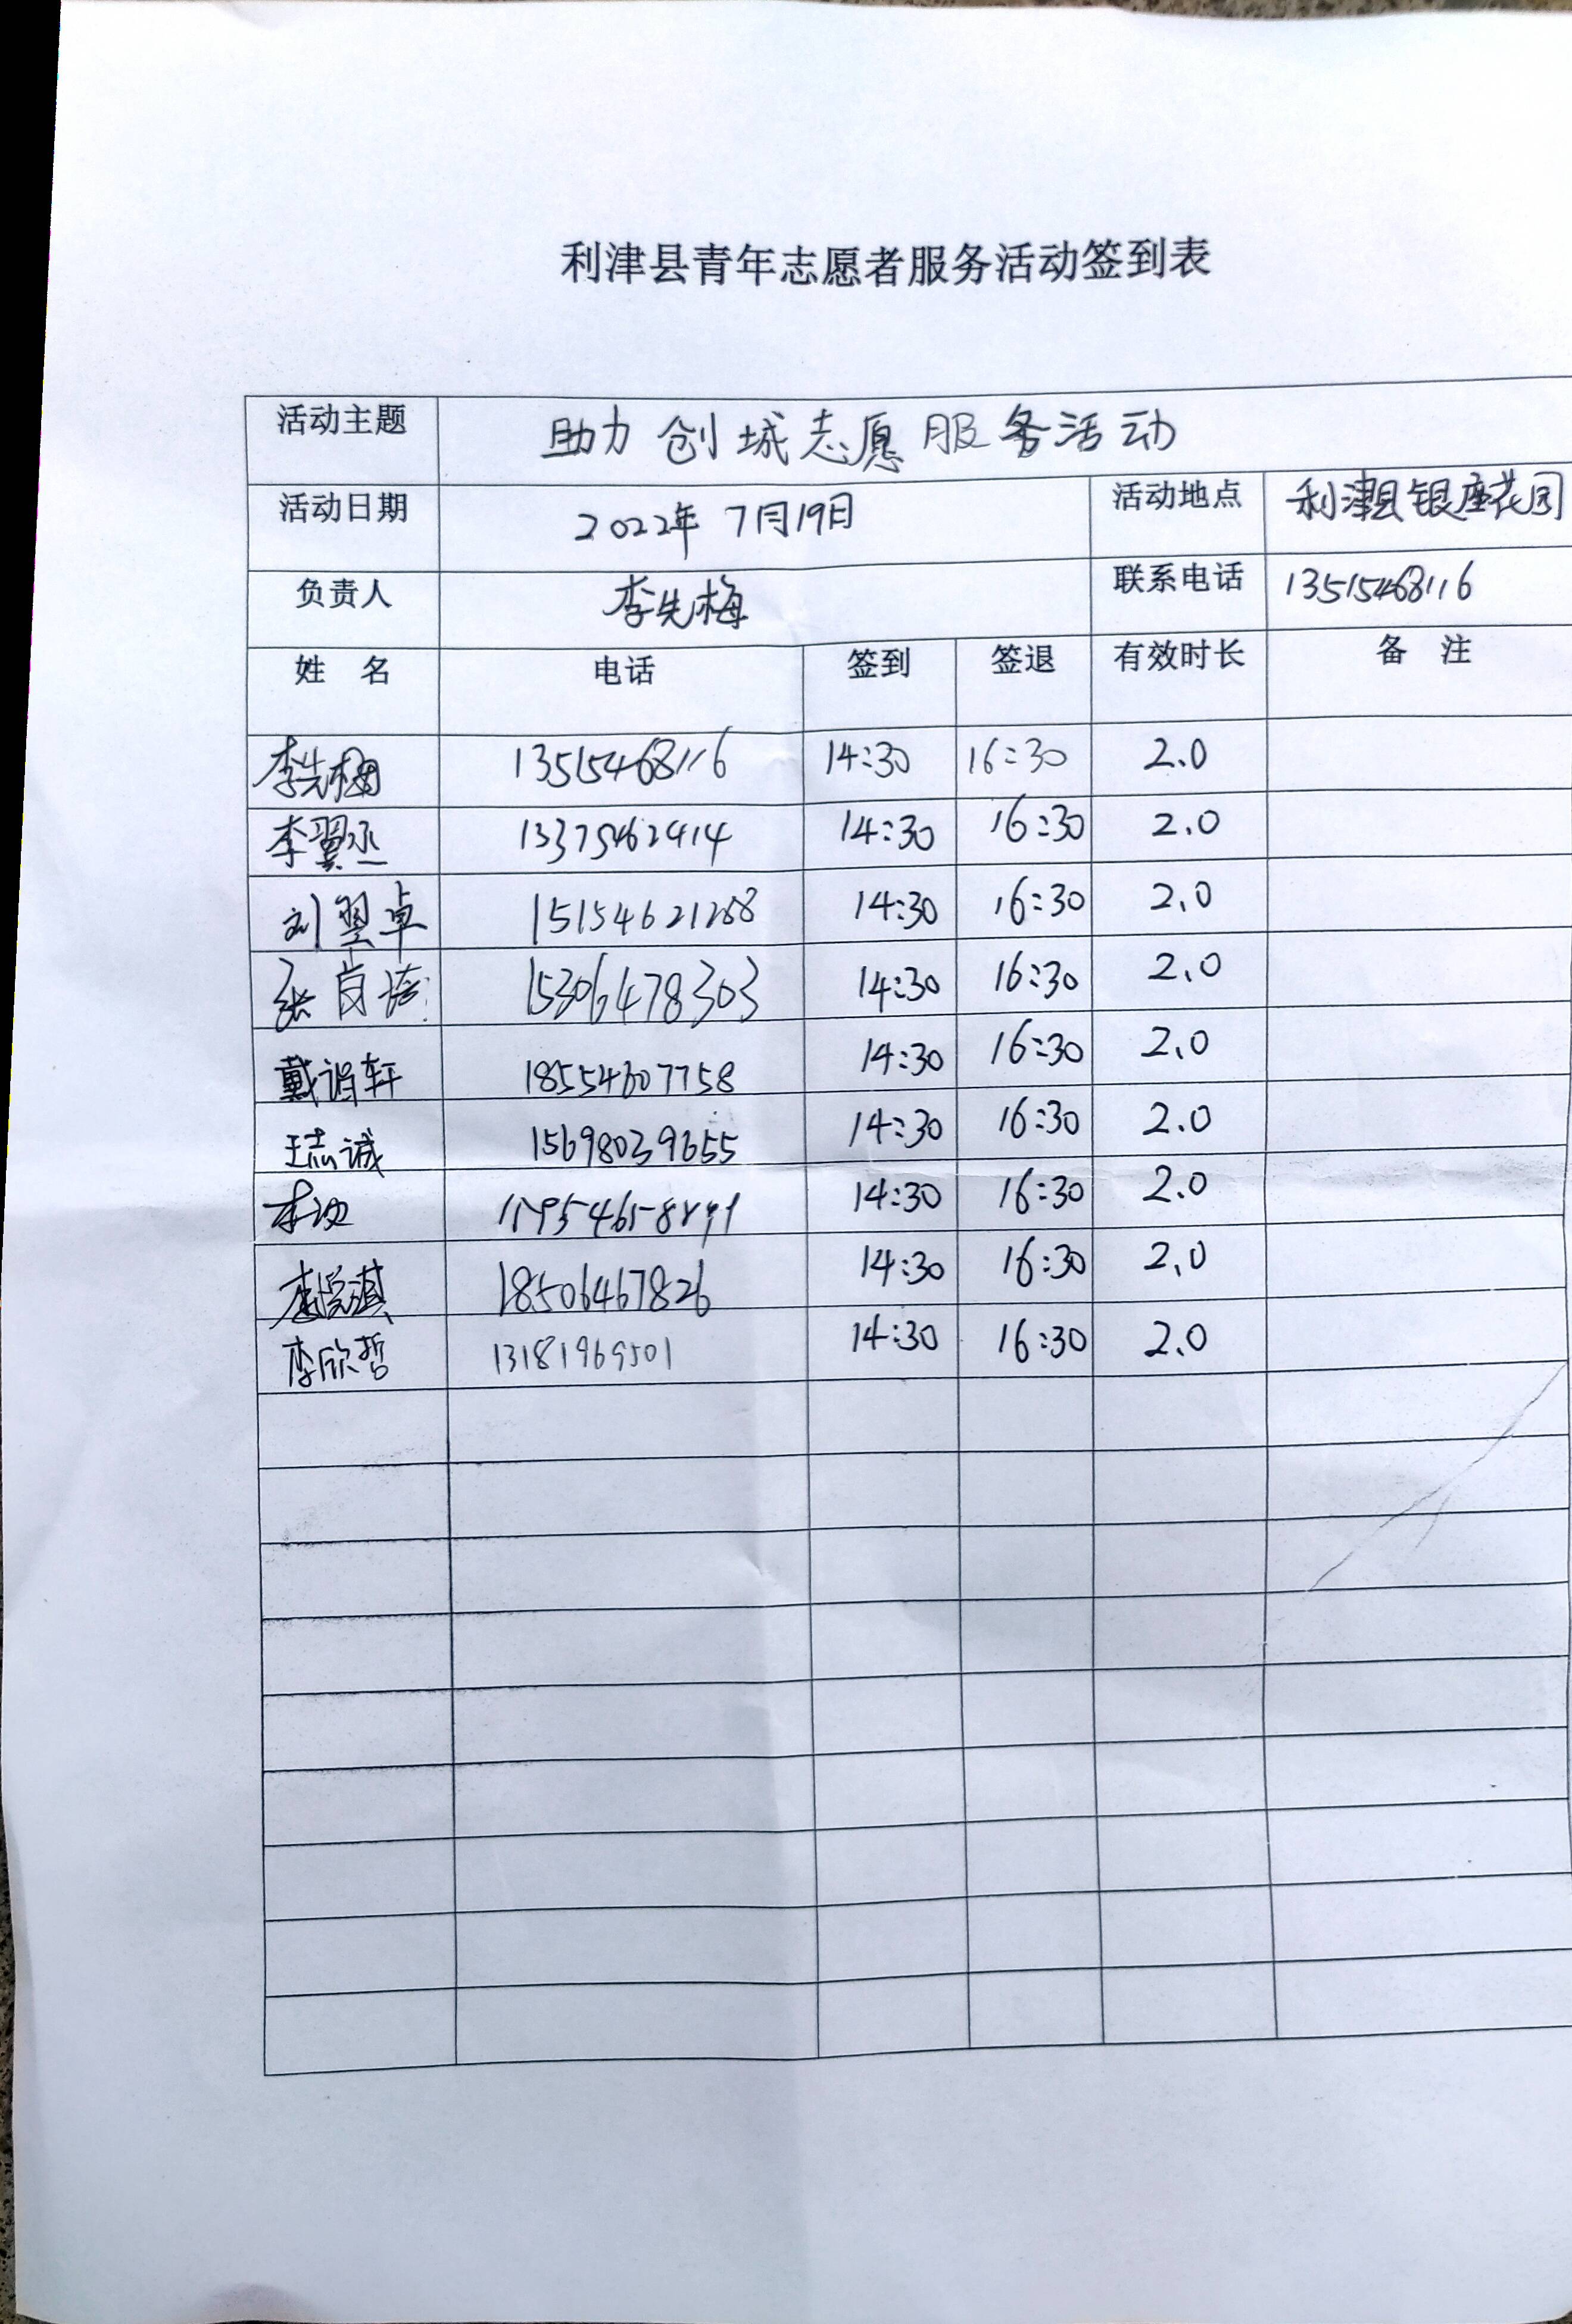 利津县青年志愿者服务活动签到表
活动主题 助力创城志愿服务活动
活动日期 2022年7月19日 活动地点 利津县银座花园
负责人 李先梅 联系电话 13515468116
姓 名 电话 签到 签退 有效时长 备 注
李先梅 13515468116 14:30 16:30 2.0
李翼丞 13375462414 14:30 16:30 2.0
刘翌卓 15154621288 14:30 16:30 2.0
张 15306478303 14:30 16:30 2.0
戴谐轩 18554607758 14:30 16:30 2.0
王志诚 15698039655 14:30 16:30 2.0
14:30 16:30 2.0
李悦淇 18506467826 14:30 16:30 2.0
李欣哲 13181969501 14:30 16:30 2.0